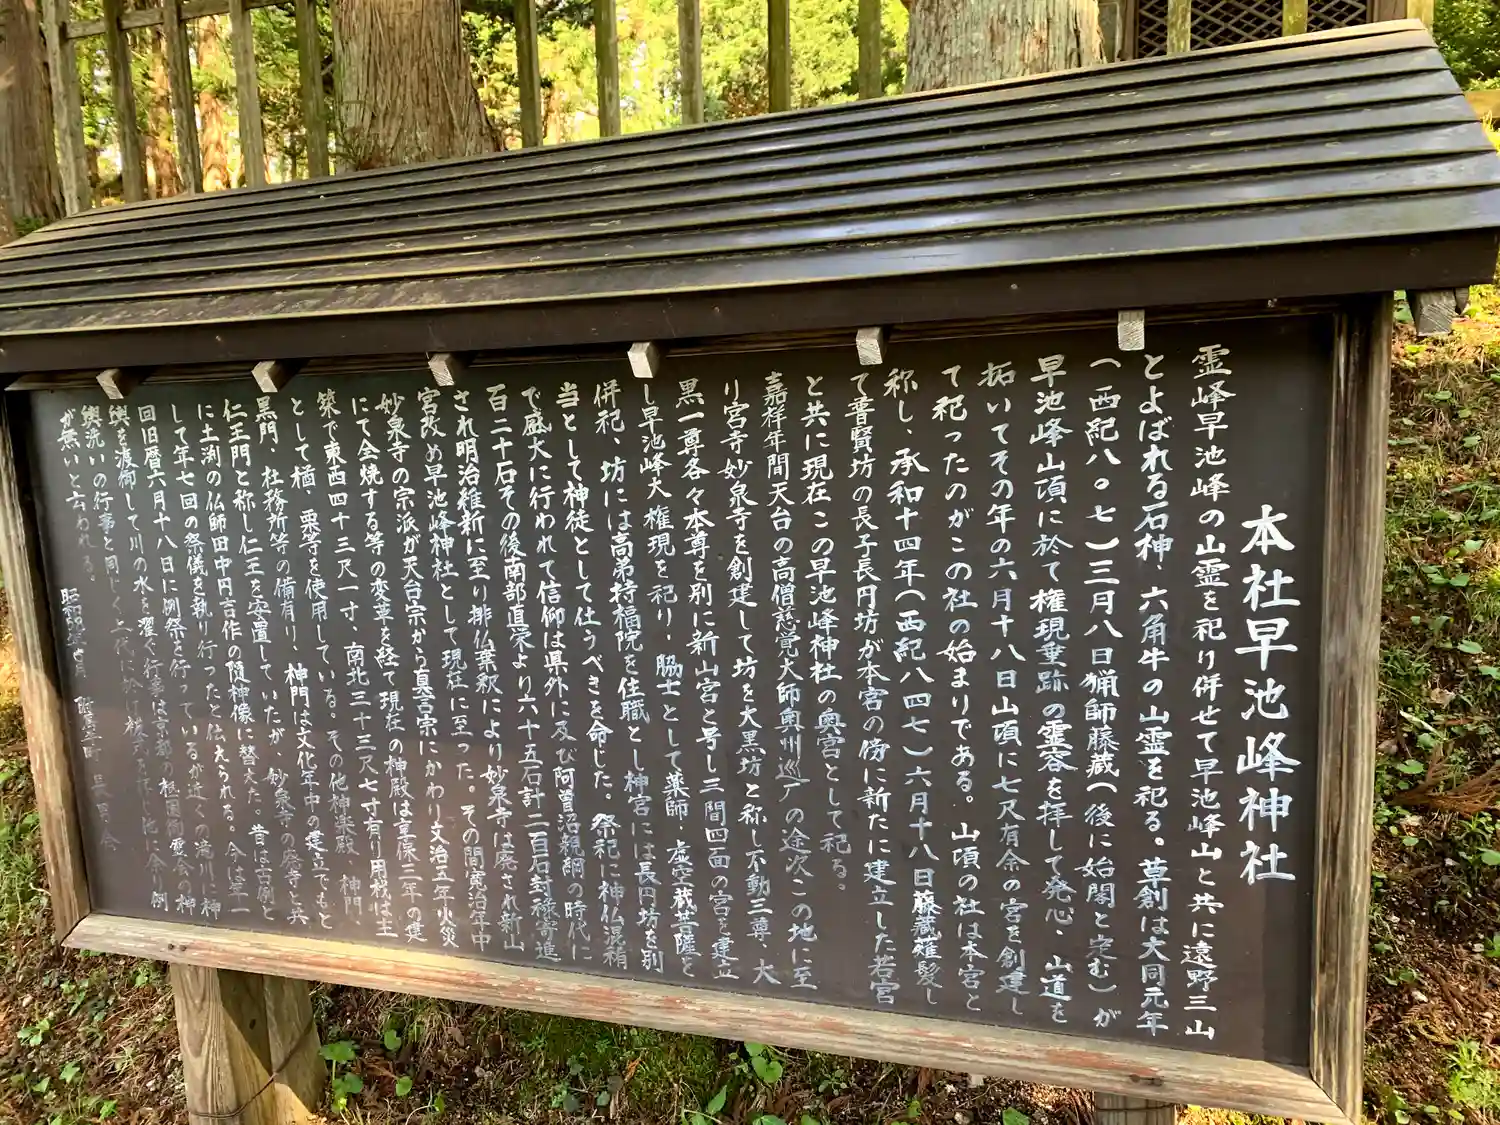 本社早池峰神社
霊峰早池峰の山霊を祀り併せて早池峰山と共に遠野三山
とよばれる石神、六角牛の山霊を祀る。草創は大同元年
(西紀八〇七)三月八日猟師藤蔵(後に始閣と定む)が
早池峰山頂に於て権現垂跡の霊容を拝して発心、山道を
拓いてその年の六月十八日山頂に七尺有余の宮を創建し
て祀ったのがこの社の始まりである。山頂の社は本宮と
称し、承和十四年(西紀八四七)六月十八日藤蔵薙髪し
て普賢坊の長子長円坊が本宮の傍に新たに建立した若宮
と共に現在この早池峰神社の奥宮として祀る。
嘉祥年間天台の高僧慈覚大師奥州巡の途次この地に至
り宮寺妙泉寺を創建して坊を大黒坊と称し不動三尊、大
黒一尊各々本尊を別に新山宮と号し三間四面の宮を建立
し早池峰大権現を祀り、脇士として薬師、虚空蔵菩薩を
併祀、坊には高弟持福院を住職とし神宮には長円坊を別
当として神徒として仕うべきを命じた。祭祀に神仏混淆
で盛大に行われて信仰は県外に及び阿曽沼親綱の時代に
百二十石その後南部直栄より六十五石計二百石封禄寄進
され明治維新に至り排仏棄釈により妙泉寺は廃され新山
宮改め早池峰神社として現在に至った。その間寛治年中
妙泉寺の宗派が天台宗から真言宗にかわり文治五年火災
にて全焼する等の変革を経て現在の神殿は享保三年の建
築で東西四十三尺一寸、南北三十三尺七寸有り用材は主
として楢、栗等を使用している。その他神楽殿、神門、
黒門、社務所等の備有り、神門は文化年中の建立でもと
仁王門と称し仁王を安置していたが、妙泉寺の廃寺と共
に土渕の仏師田中円吉作の随神像に替えた。昔は古例と
して年七回の祭儀を執り行ったと伝えられる。今は年一
回旧暦六月十八日に例祭を行っているが近くの滝川に神
輿を渡御して川の水を濯ぐ行事は京都の祇園御霊会の神
輿洗いの行事と同じく上代に於
が無いと云われる。